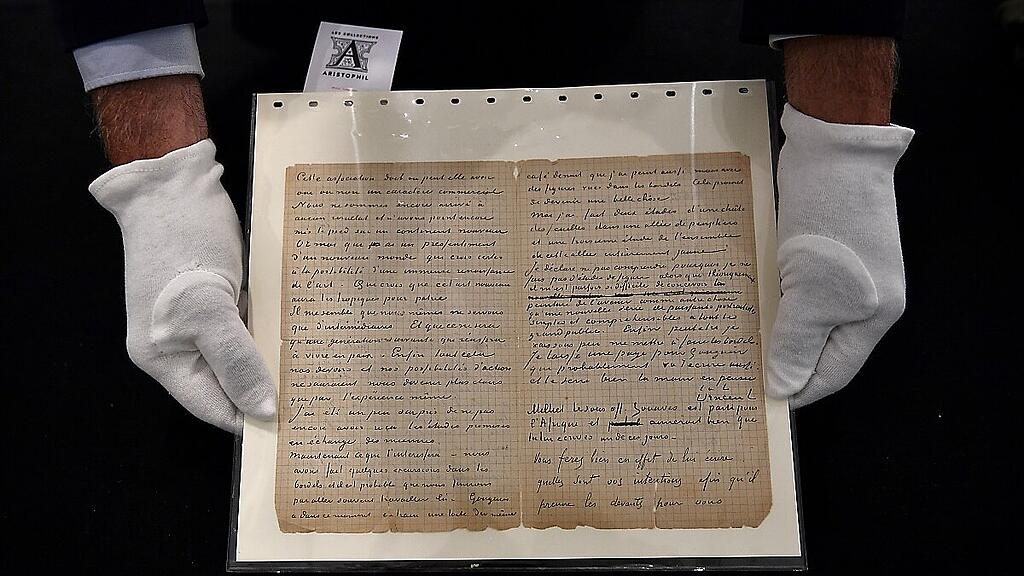 LES COLLECTIONS
A
ARISTOPHIL
Cette association doit ou peut elle avoir
oui ou non un caractère commercial
Nous ne sommes encore arrivé à
aucun resultat et n'avons point encore
mis le pied sur un continent nouveau
Et moi que ai un pressentiment
d'un nouveau monde qui crois certes
à la possibilité d'une immense renaissance
de l'art. Qui crois que cet art nouveau
aura les tropiques pour patrie
Il me semble que nous mêmes ne servons
que d'intermédiaires. Et que ce ne sera
qu'une génération suivante qui réussira
à vivre en paix. Enfin tout cela
nos devoirs et nos possibilités d'action
ne sauraient nous devenir plus claires
que par l'expérience même.
J'ai été un peu surpris de ne pas
encore avoir reçu les études promises
en échange des miennes
Maintenant ce que t'interessera – nous
avons fait quelques excursions dans les
bordels et il est probable que nous finirons
par aller souvent travailler là. Gauguin
a dans ce moment en train une toile du même
café de nuit que j'ai peint aussi mais avec
des figures vues dans les bordels. Cela promet
de devenir une belle chose
moi j'ai fait deux études d'une chûte
des feuilles dans une allée de peupliers
et une troisième étude de l'ensemble
de cette allée entièrement jaune
Je déclare ne pas comprendre pourquoi je ne
fais pas d'études de figure alors que théoriquement
il m'est parfois si difficile de concevoir la
peinture de l'avenir comme autre chose
qu'une nouvelle série de puissants portraitistes
simples et compréhensibles à tout le
grand public. Enfin peutêtre je
vais sous peu me mettre à faire les bordels
Je laisse une page pour Gauguin
qui probablement va t'écrire aussi
et te serre bien la main en pensée
t. à t.
Vincent
Milliet le sous off. Zouaves est parti pour
l'Afrique et aimerait bien que
tu lui écrives un de ces jours –
Vous ferez bien en effet de lui écrire
quelles sont vos intentions afin qu'il
prenne les devants pour vous